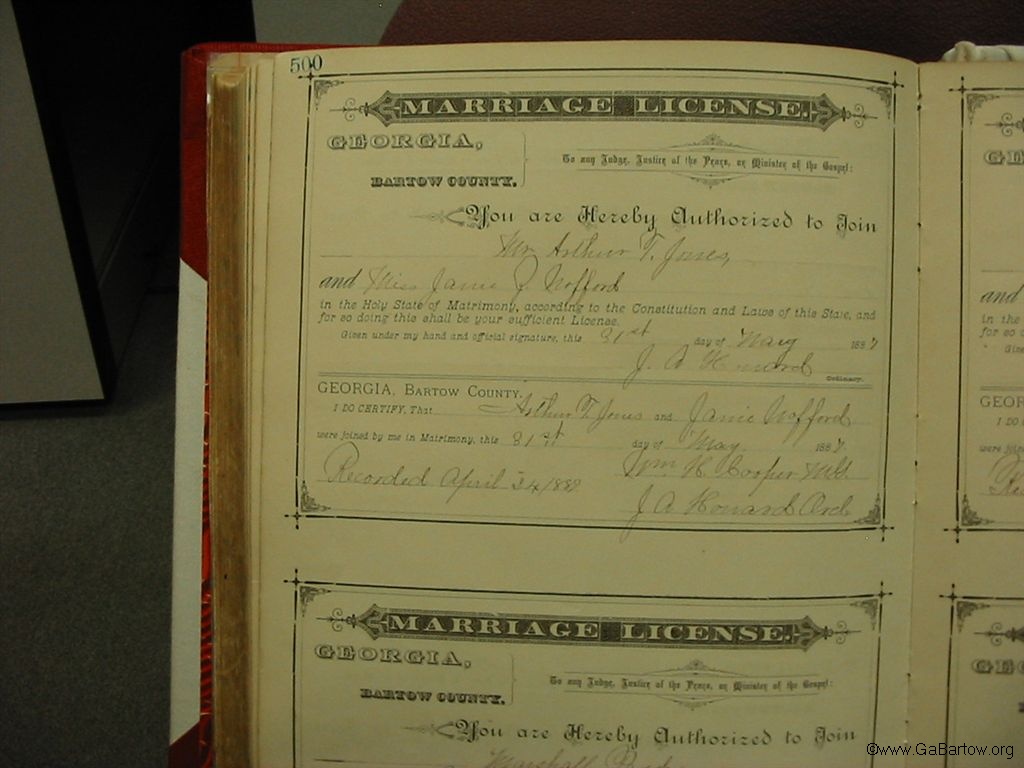 500
MARRIAGE LICENSE.
GEORGIA,
BARTOW COUNTY.
To any Judge, Justice of the Peace, or Minister of the Gospel:
You are Hereby Authorized to Join
Mr Arthur T. Jones,
and Miss Janie J Wofford
in the Holy State of Matrimony, according to the Constitution and Laws of this State, and
for so doing this shall be your sufficient License.
Given under my hand and official signature, this 31st day of May 1887
J. A Howard
Ordinary.
GEORGIA, BARTOW COUNTY.
I DO CERTIFY, That Arthur T. Jones and Janie Wofford
were joined by me in Matrimony, this 31st day of May 1887.
Wm H. Cooper MG.
Recorded April 24/1889
J A Howard Ord
MARRIAGE LICENSE.
GEORGIA,
BARTOW COUNTY.
To any Judge, Justice of the Peace, or Minister of the Gospel:
You are Hereby Authorized to Join
Marshall
GE
and
in the
for so
Give
GEORG
I DO
were join
Re
GE
©www.GaBartow.org